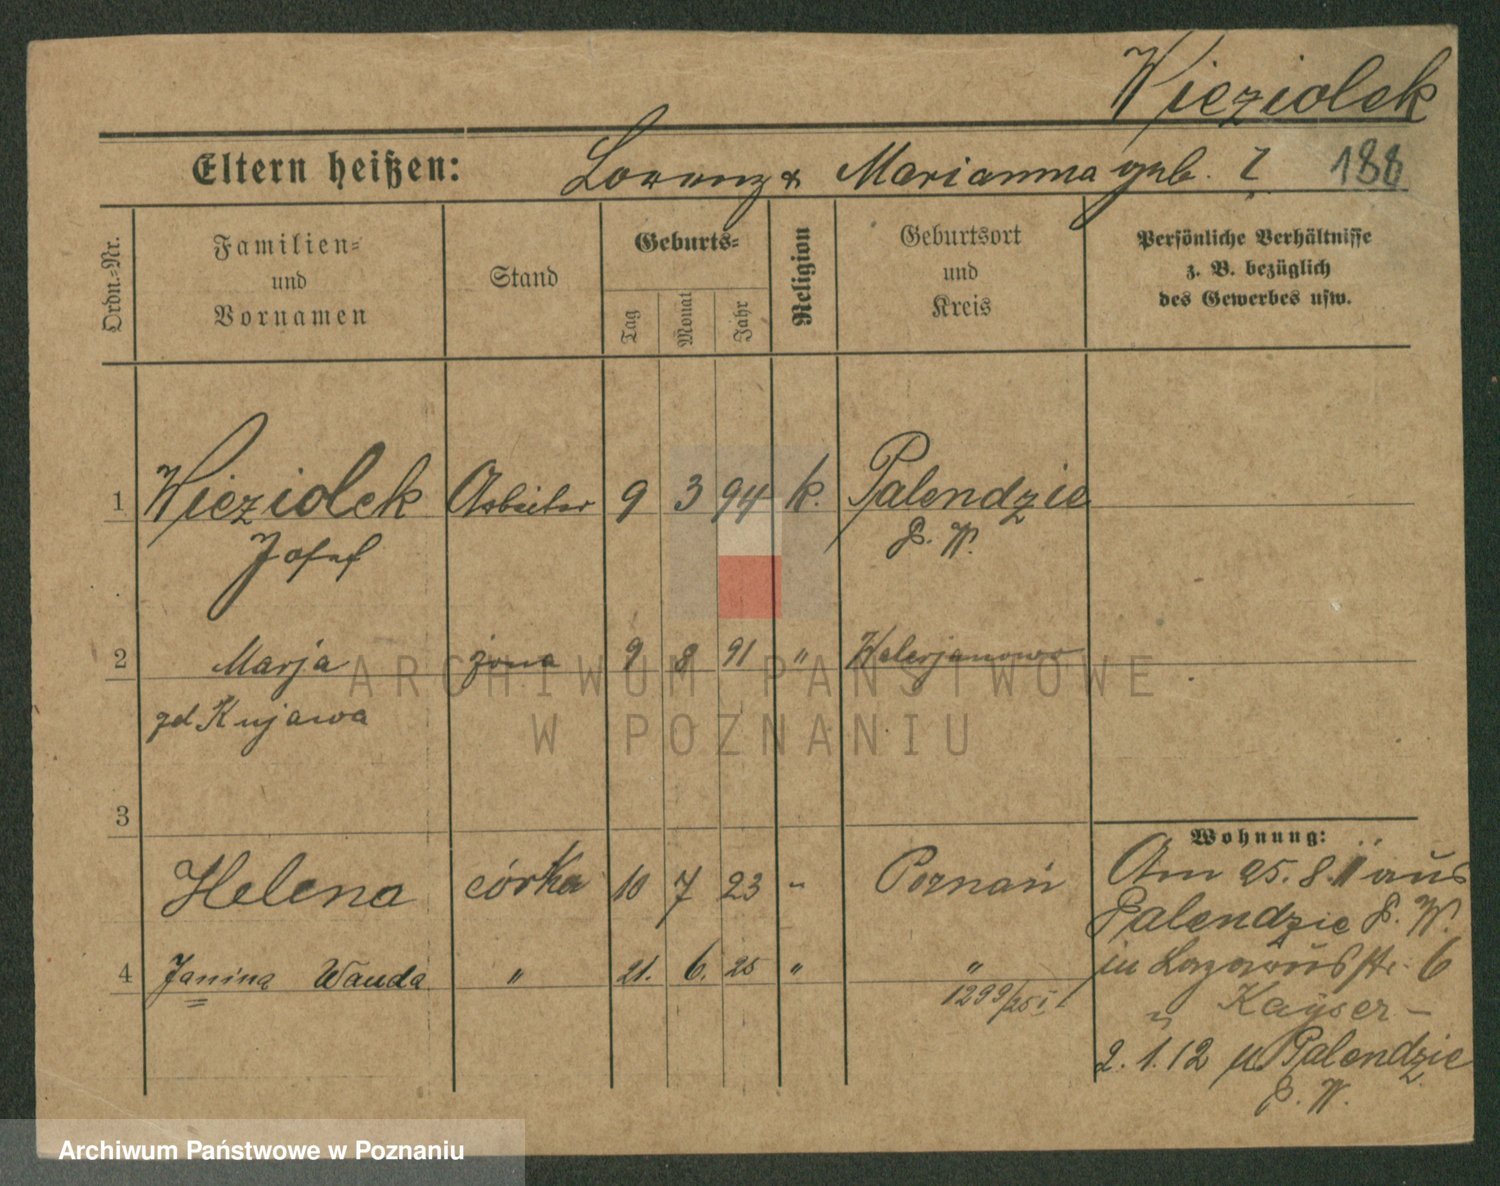 Wieziolek
Eltern heißen: Lorenz & Marianna geb. ? 188
Ordn.-Nr.
Familien-
und
Vornamen
Stand
Geburts-
Tag
Monat
Jahr
Religion
Geburtsort
und
Kreis
Persönliche Verhältnisse
z. B. bezüglich
des Gewerbes usw.
1 Wieziolek Arbeiter 9 3 94 k. Palendzie
Josef P. W.
2 Marja żona 9 8 91 " Walerjanowo
zd Kujawa
3
Helena córka 10 7 23 " Poznań
4 Janina Wanda " 21. 6. 25 " "
1299/25 I
Wohnung:
Am 25.8.11 aus
Palendzie P. W.
in Lazarusstr. 6
" Kayser
2.1.12 n Palendzie
P. W.
ARCHIWUM PAŃSTWOWE
W POZNANIU
Archiwum Państwowe w Poznaniu